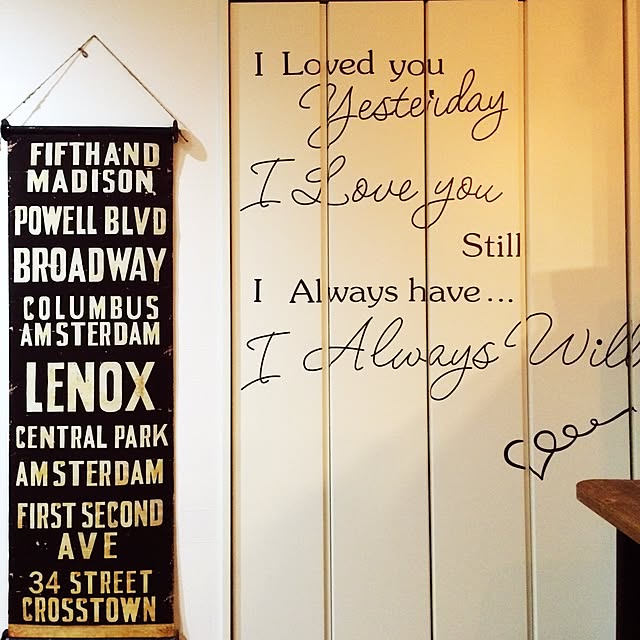 FIFTHAND
MADISON
POWELL BLVD
BROADWAY
COLUMBUS
AMSTERDAM
LENOX
CENTRAL PARK
AMSTERDAM
FIRST SECOND
AVE
34 STREET
CROSSTOWN
I Loved you
Yesterday
I Love you
Still
I Always have...
I Always Will